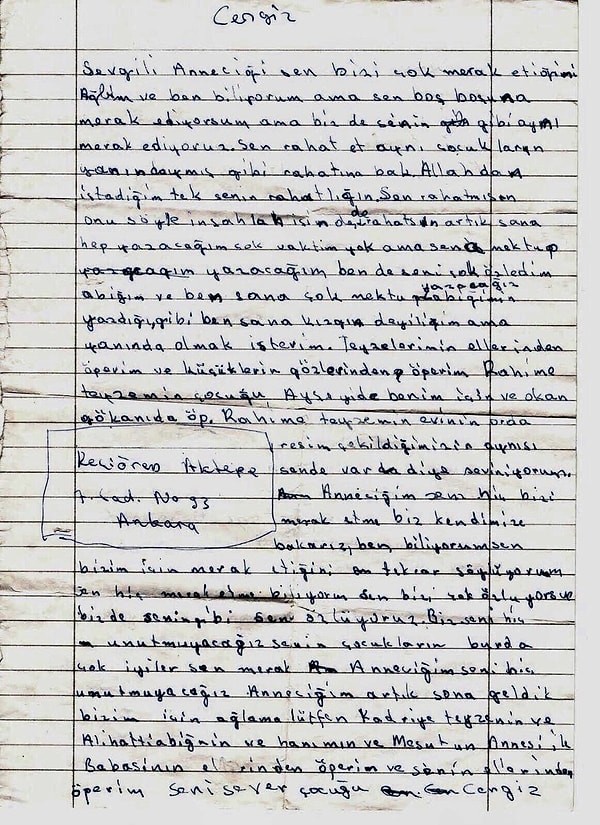 Cengiz
Sevgili Anneciği sen bizi çok merak etiğini
Ağbim ve ben biliyorum ama sen boş boşuna
merak ediyorsum ama biz de senin gibi aynı
merak ediyoruz. Sen rahat et aynı çocukların
yanındaymış gibi rahatına bak. Allahdan
istadiğim tek senin rahatlığın. Sen rahatmısın
onu söyle inşahlah için de rahatsın artık sana
hep yazacağım çok vaktim yok ama sana mektup
yazacağım yazacağım ben de seni çok özledim
abiğim ve ben sana çok mektup yazacağız abiğimin
yazdığı, gibi ben sana kızgın deyiliğim ama
yanında olmak isterim. Teyzelerimin ellerinden
öperim ve küçüklerin gözlerinden öperim Rahime
teyzemin çocuğu, Ayşeyide benim için ve okan
gökanıda öp. Rahime teyzemin evinin orda
resim çekildiğimizin aynısı
sende varda diye seviniyorum.
Anneciğim sen hiç bizi
merak etme biz kendimize
bakarız, ben, biliyorum sen
Keçiören Aktepe
7. cad. No 93
Ankara
bizim için merak etiğini tekrar söylüyorum
sen hiç merak etme biliyorum sen bizi çok özlüyorsun
bizde senin gibi sen özlüyoruz. Biz seni hiç
unutmuyacağız senin çocukların burda
çok iyiler sen merak Anneciğim seni hiç
unutmuyacağız Anneciğim artık sona geldik
bizim için ağlama lütfen Kadriye teyzenin ve
Alihattiabiğmin ve hanımın ve Mesutun Annesi ik
Babasinin ellerinden öperim ve senin ellerinden
öperim seni sever çocuğu Cengiz